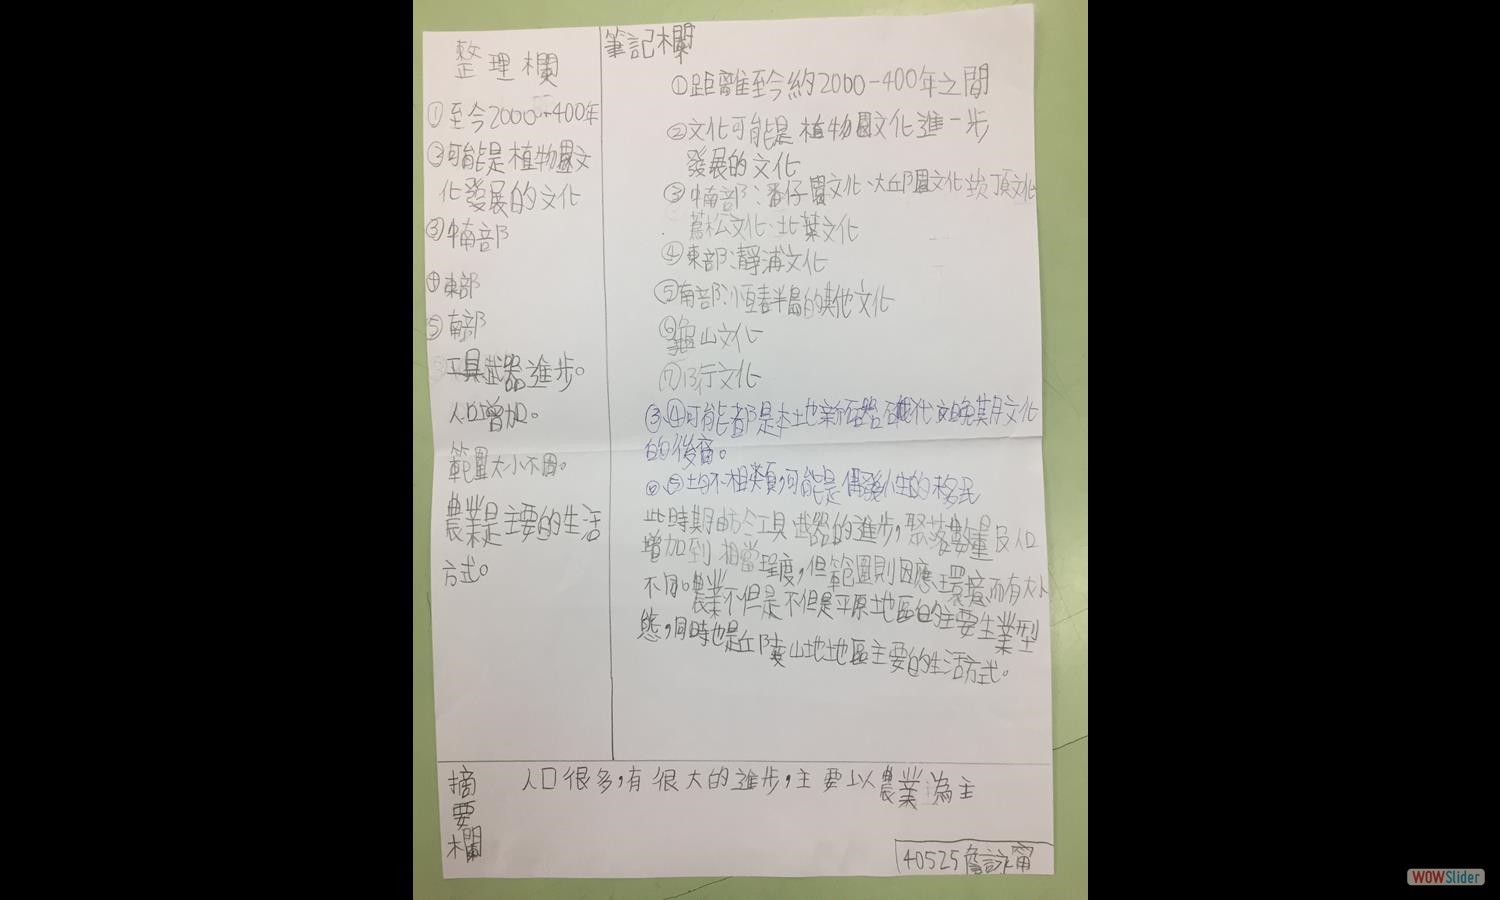 整理欄
①至今2000-400年
②可能是植物園文
化發展的文化
③中南部
④東部
⑤南部
工具武器進步。
人口增加。
範圍大小不同。
農業是主要的生活
方式。
筆記欄
①距離至今約2000-400年之間
②文化可能是植物園文化進一步
發展的文化
③中南部:番仔園文化、大丘園文化、崁頂文化
蔦松文化、北葉文化
④東部:靜浦文化
⑤南部:恆春半島的其他文化
⑥龜山文化
⑦十三行文化
③、④可能都是本土新石器時代晚期文化
的後裔。
⑥、⑤均不相類,可能是偶發性的移民
此時期由於工具武器的進步,聚落數量及人口
增加到相當程度,但範圍則因應環境而有大小
不同。農業不但是不但是平原地區的主要生業型
態,同時也是丘陵山地地區主要的生活方式。
摘要欄
人口很多,有很大的進步,主要以農業為主
40525詹詠甯
WOWSlider